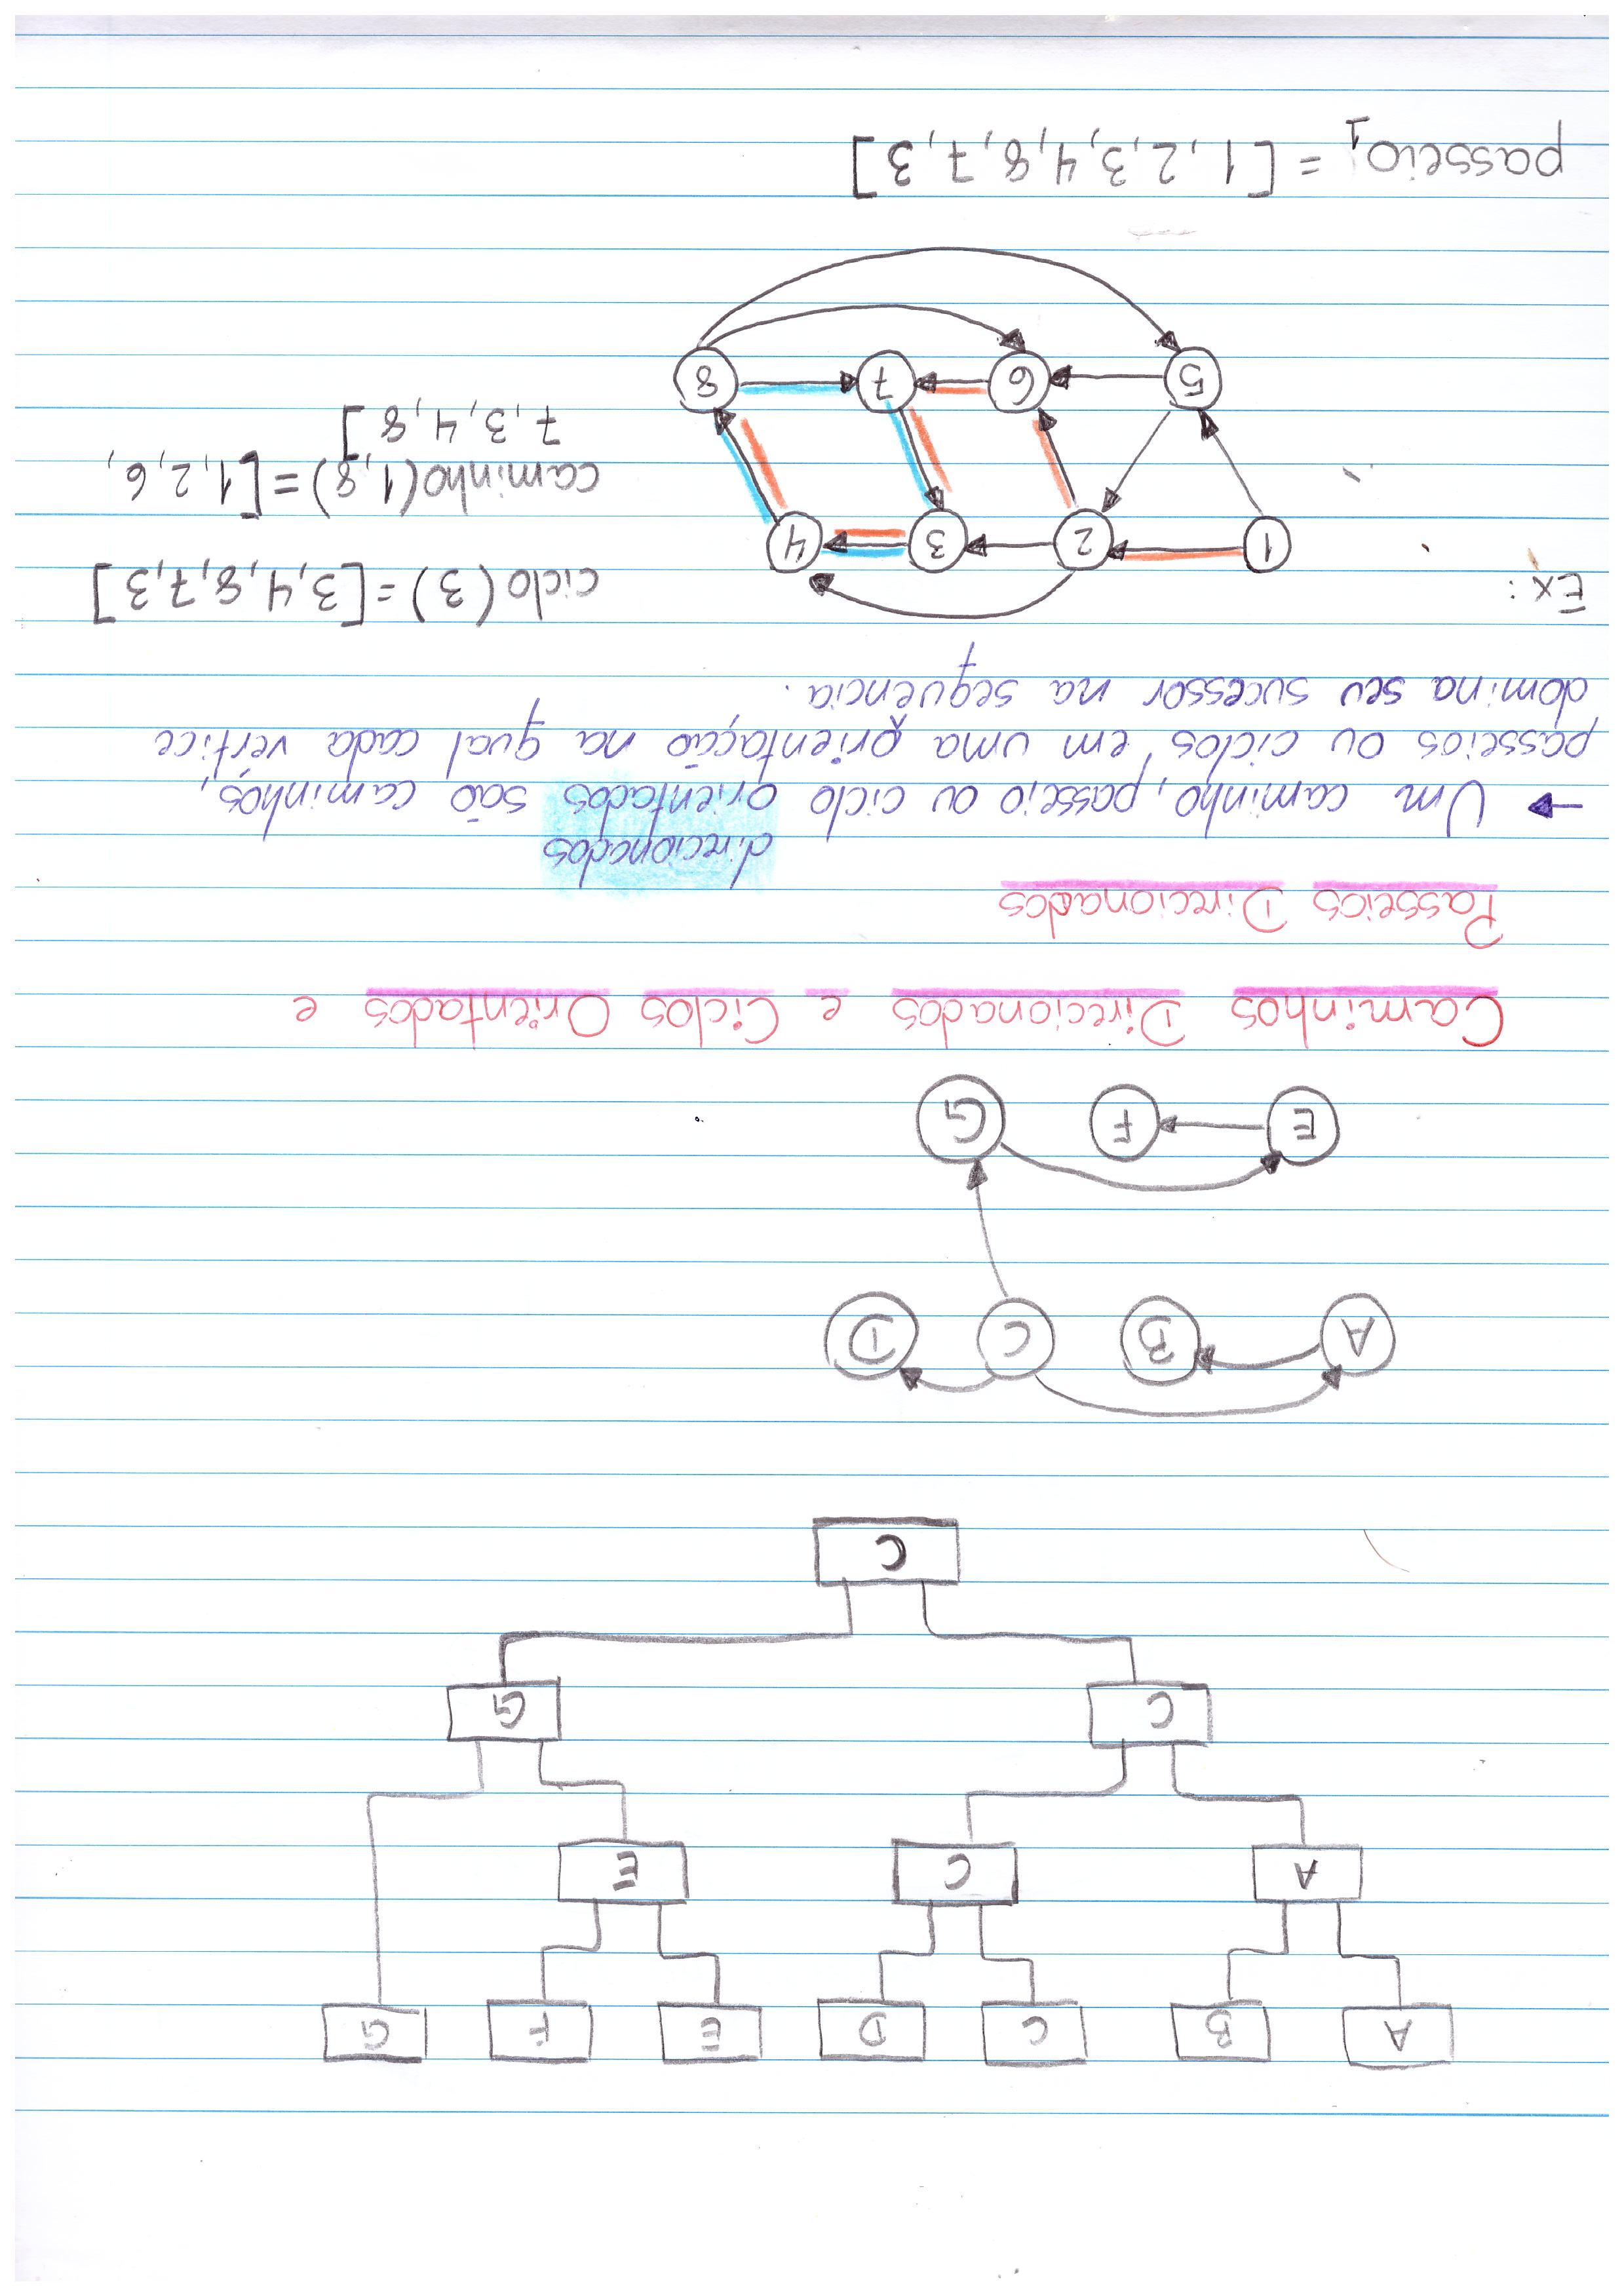 A B C D E F G
A C E
C G
C
A B C D
E F G
Caminhos Direcionados e Ciclos Orientados e
Passeios Direcionados
direcionados
→ Um caminho, passeio ou ciclo orientados são caminhos,
passeios ou ciclos em uma orientação na qual cada vértice
domina seu sucessor na sequência.
Ex:
ciclo(3)=[3,4,8,7,3]
1 2 3 4
caminho(1,8)=[1,2,6,
7,3,4,8]
5 6 7 8
passeio₁ = [1,2,3,4,8,7,3]